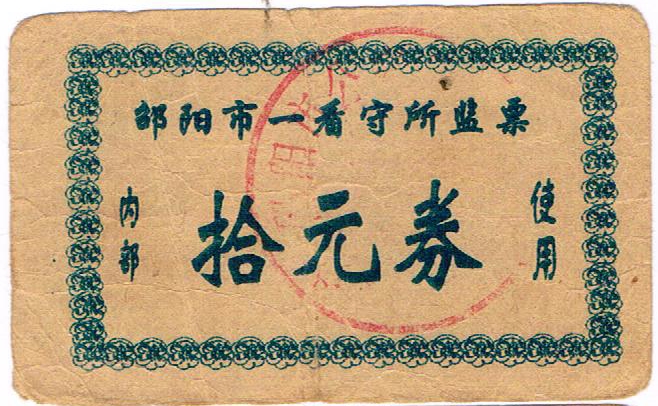 邵阳市一看守所监票
内部
拾元券
使用